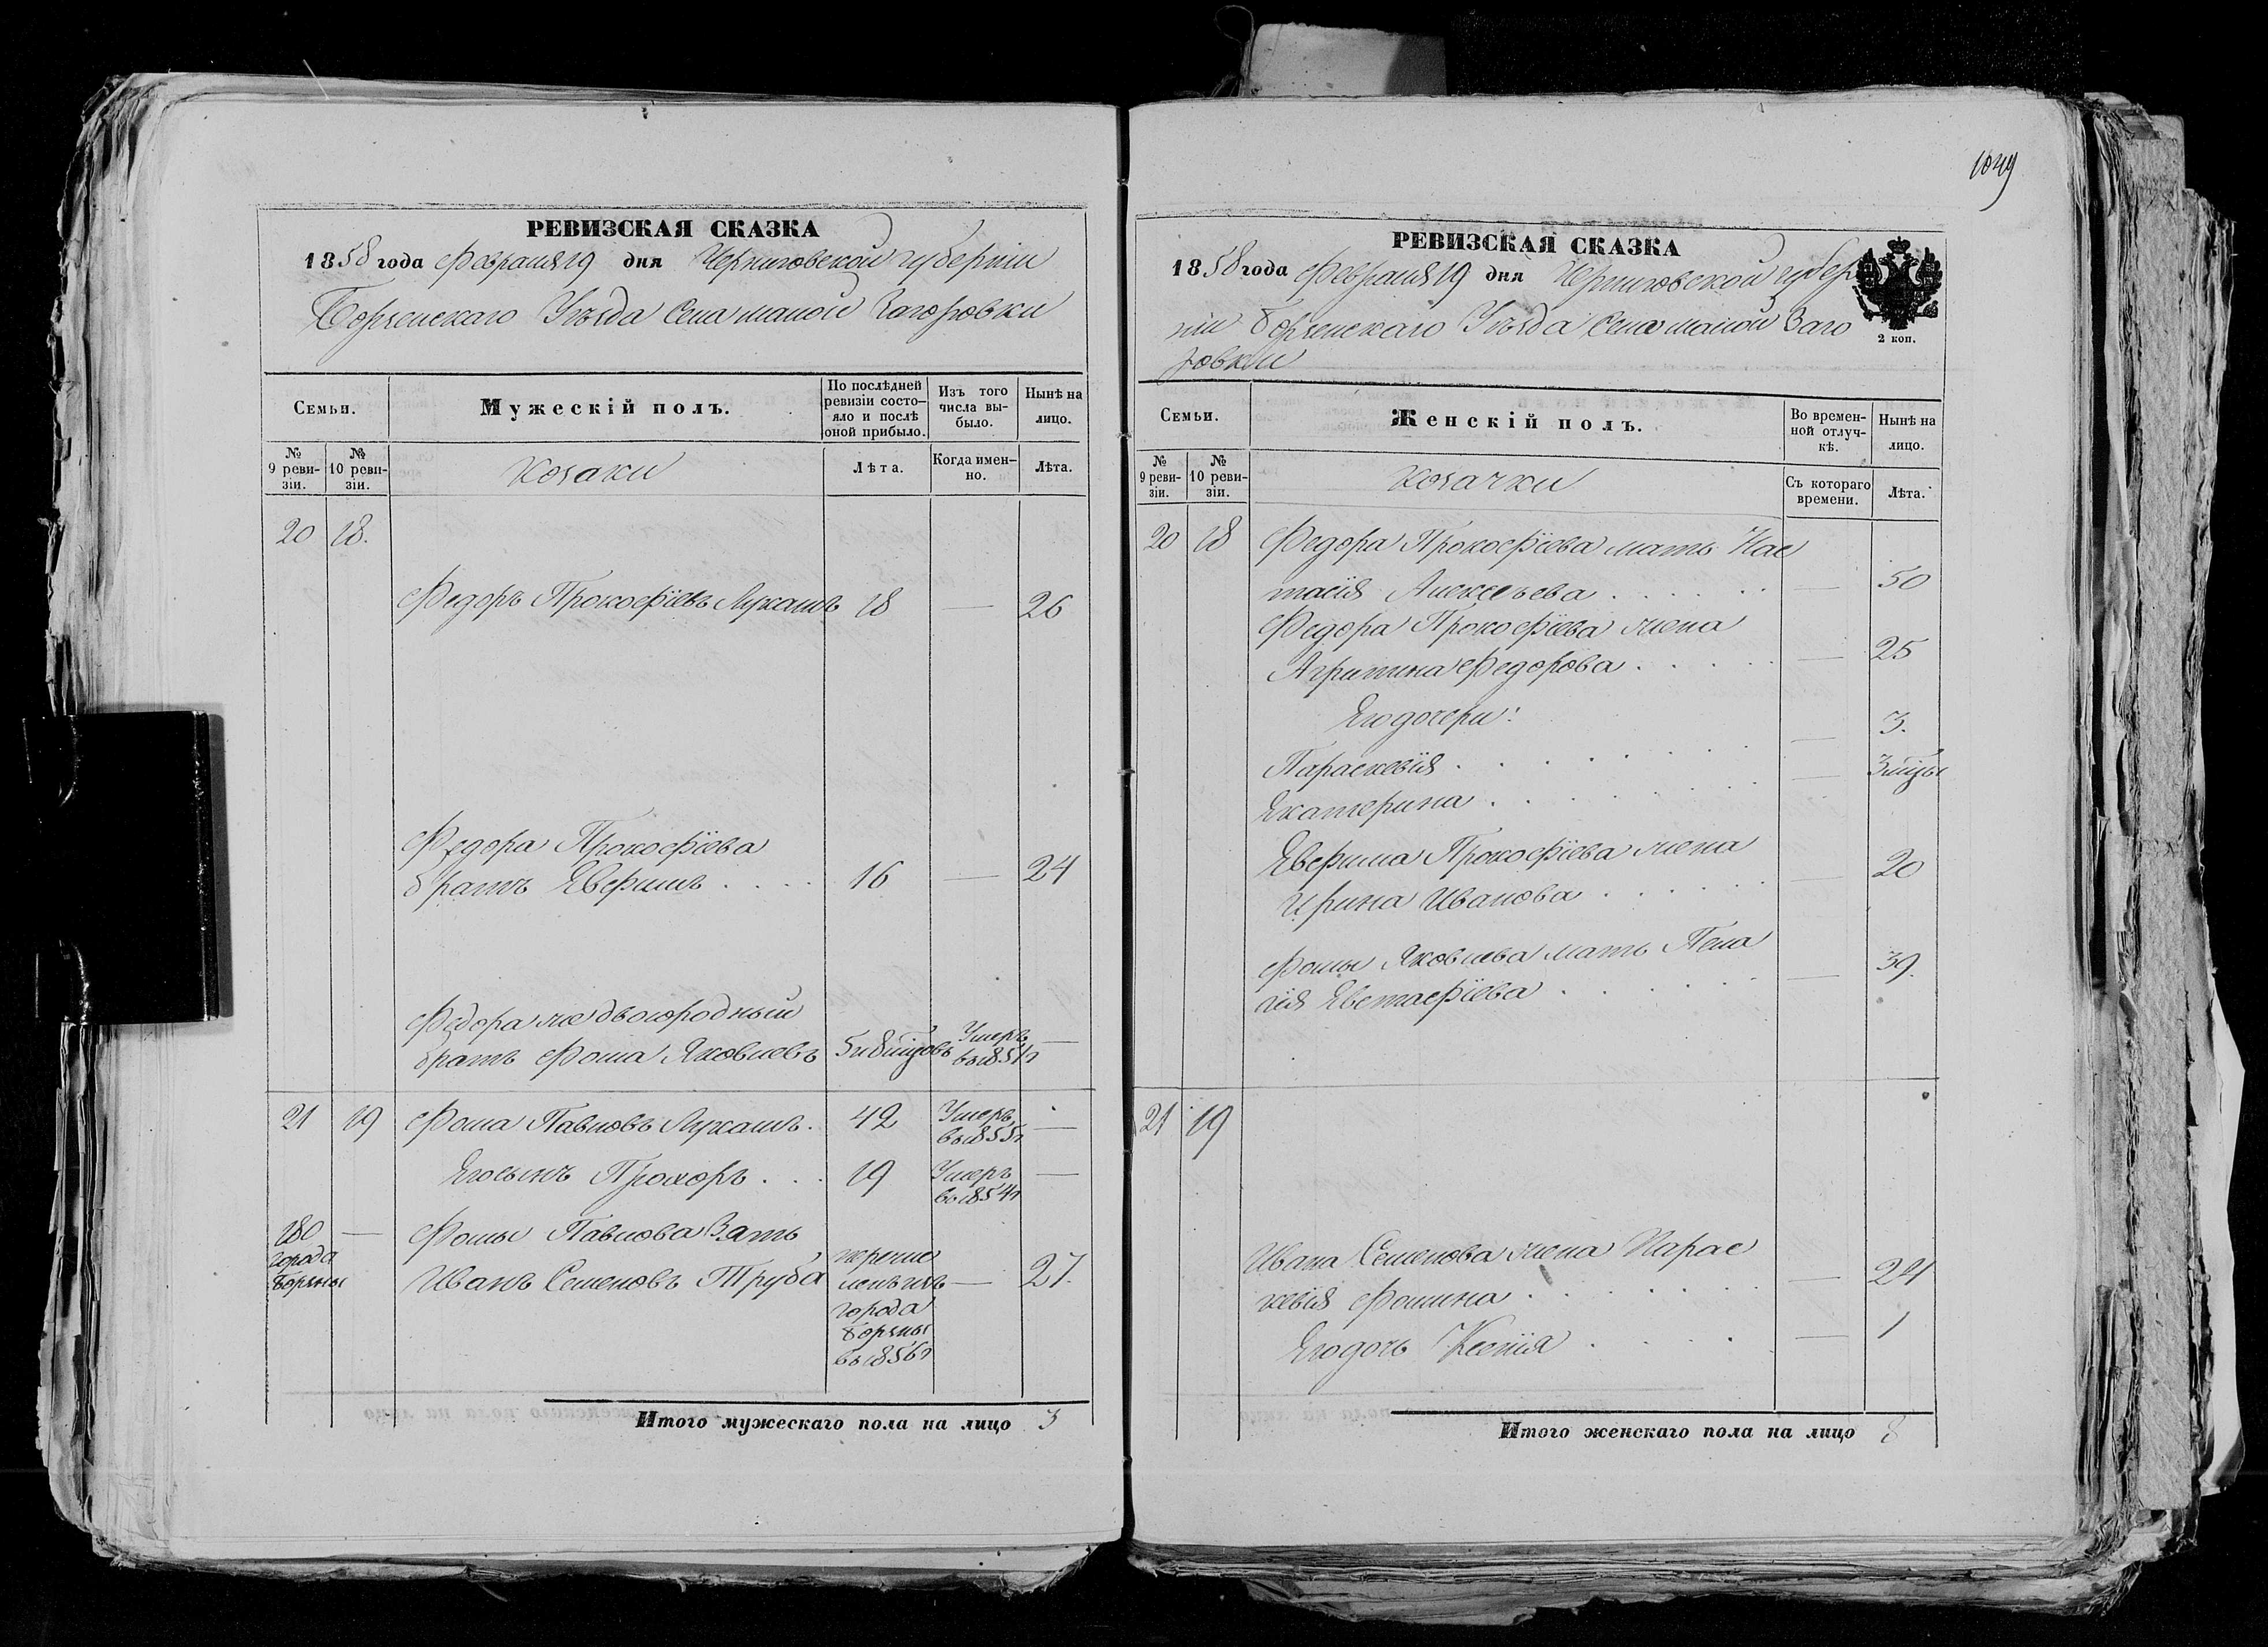 1049
РЕВИЗСКАЯ СКАЗКА
1858 года Февраля 19 дня Черниговской губерніи
Борзенскаго Уѣзда Села малой Загоровки
Семьи.
Мужескій полъ.
По послѣдней ревизіи состояло и послѣ оной прибыло.
Изъ того числа выбыло.
Нынѣ на лицо.
№ 9 ревизіи.
№ 10 ревизіи.
Козаки
Лѣта.
Когда именно.
Лѣта.
20 18.
Федоръ Прокофіевъ Лукашъ 18 — 26
Федора Прокофіева
братъ Евфимъ . . . . 16 — 24
Федора же двоюродный
братъ Фома Яковлевъ 5 и 8 мѣцовъ Умеръ въ 1851 г —
21 19 Фома Павловъ Лукашъ. 42 Умеръ въ 1855 г —
Его сынъ Прохоръ . . . 19 Умеръ въ 1854 г —
180 города Борзны — Фомы Павлова Зять
Иванъ Семеновъ Труба перечисленъ изъ города Борзны въ 1856 г — 27.
Итого мужескаго пола на лицо 3
РЕВИЗСКАЯ СКАЗКА
1858 года Февраля 19 дня Черниговской губер
ніи Борзенскаго Уѣзда Села малой Заго
ровки
2 коп.
Семьи.
Женскій полъ.
Во временной отлучкѣ.
Нынѣ на лицо.
№ 9 ревизіи.
№ 10 ревизіи.
Козачки
Съ котораго времени.
Лѣта.
20 18 Федора Прокофіева мать Нас
тасія Алексѣева . . . . . . — 50
Федора Прокофіева жена
Агрипина Федорова . . . . . — 25
Его дочери:
Параскевія . . . . . . — 3.
Екатерина . . . . . . — 3 мѣцы
Евфима Прокофіева жена
Ирина Иванова . . . . . — 20
Фомы Яковлева мать Пела
гія Евстафіева . . . . . — 39
21 19
Ивана Семенова жена Парас
кевія Фомина . . . . . . — 24
Его дочь Ксенія . . . . — 1
Итого женскаго пола на лицо 8